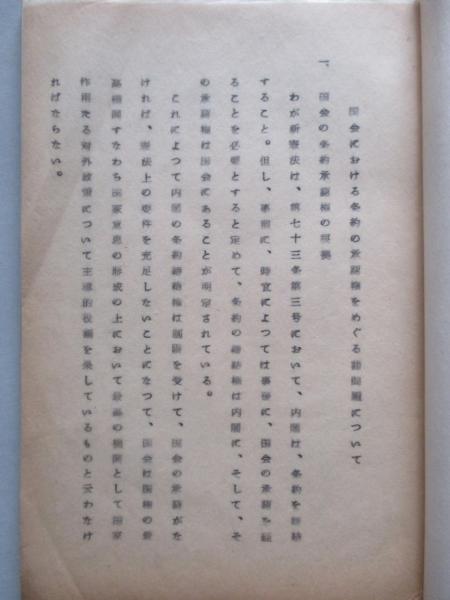 国会における条約の承認権をめぐる諸問題について
一、国会の条約承認権の根拠
わが新憲法は、第七十三条第三号において、内閣は、条約を締結
すること。但し、事前に、時宜によつては事後に、国会の承認を経
ることを必要とすると定めて、条約の締結権は内閣に、そして、そ
の承認権は国会にあることが明定されている。
これによつて内閣の条約締結権は制限を受けて、国会の承認がな
ければ、憲法上の要件を充足しないことになつて、国会は国権の最
高機関すなわち国家意思の形成の上において最高の機関として国家
作用たる対外政策について主導的役割を果しているものと云わなけ
ればならない。